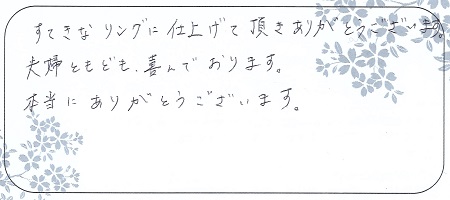 すてきなリングに仕上げて頂きありがとうございます。
夫婦ともども、喜んでおります。
本当にありがとうございます。